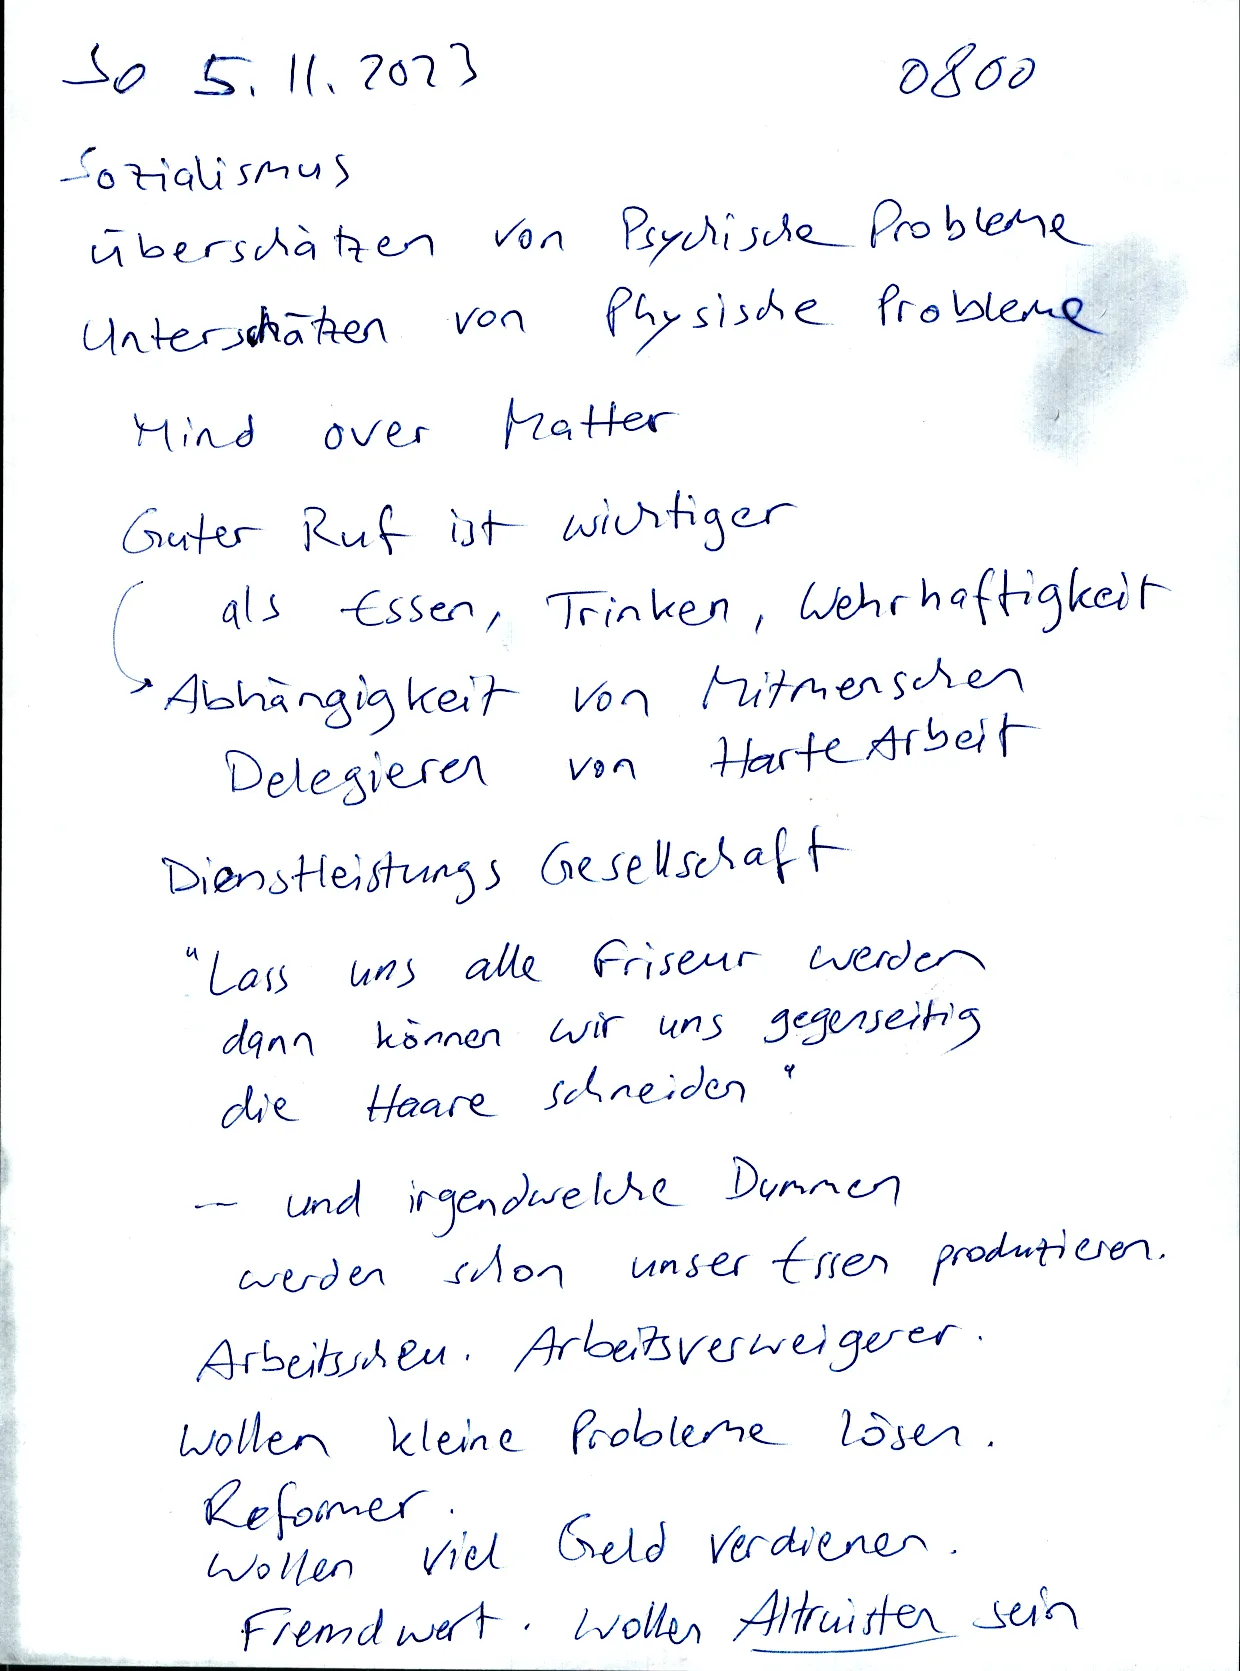 So 5.11.2023 0800
Sozialismus
überschätzen von Psychische Probleme
Unterschätzen von Physische Probleme
Mind over Matter
Guter Ruf ist wichtiger
als Essen, Trinken, Wehrhaftigkeit
→ Abhängigkeit von Mitmenschen
Delegieren von Harte Arbeit
Dienstleistungs Gesellschaft
"Lass uns alle Friseur werden
dann können wir uns gegenseitig
die Haare schneiden"
— und irgendwelche Dummen
werden schon unser Essen produzieren.
Arbeitsscheu. Arbeitsverweigerer.
Wollen kleine Probleme lösen.
Reformer.
Wollen viel Geld verdienen.
Fremdwert. Wollen Altruisten sein